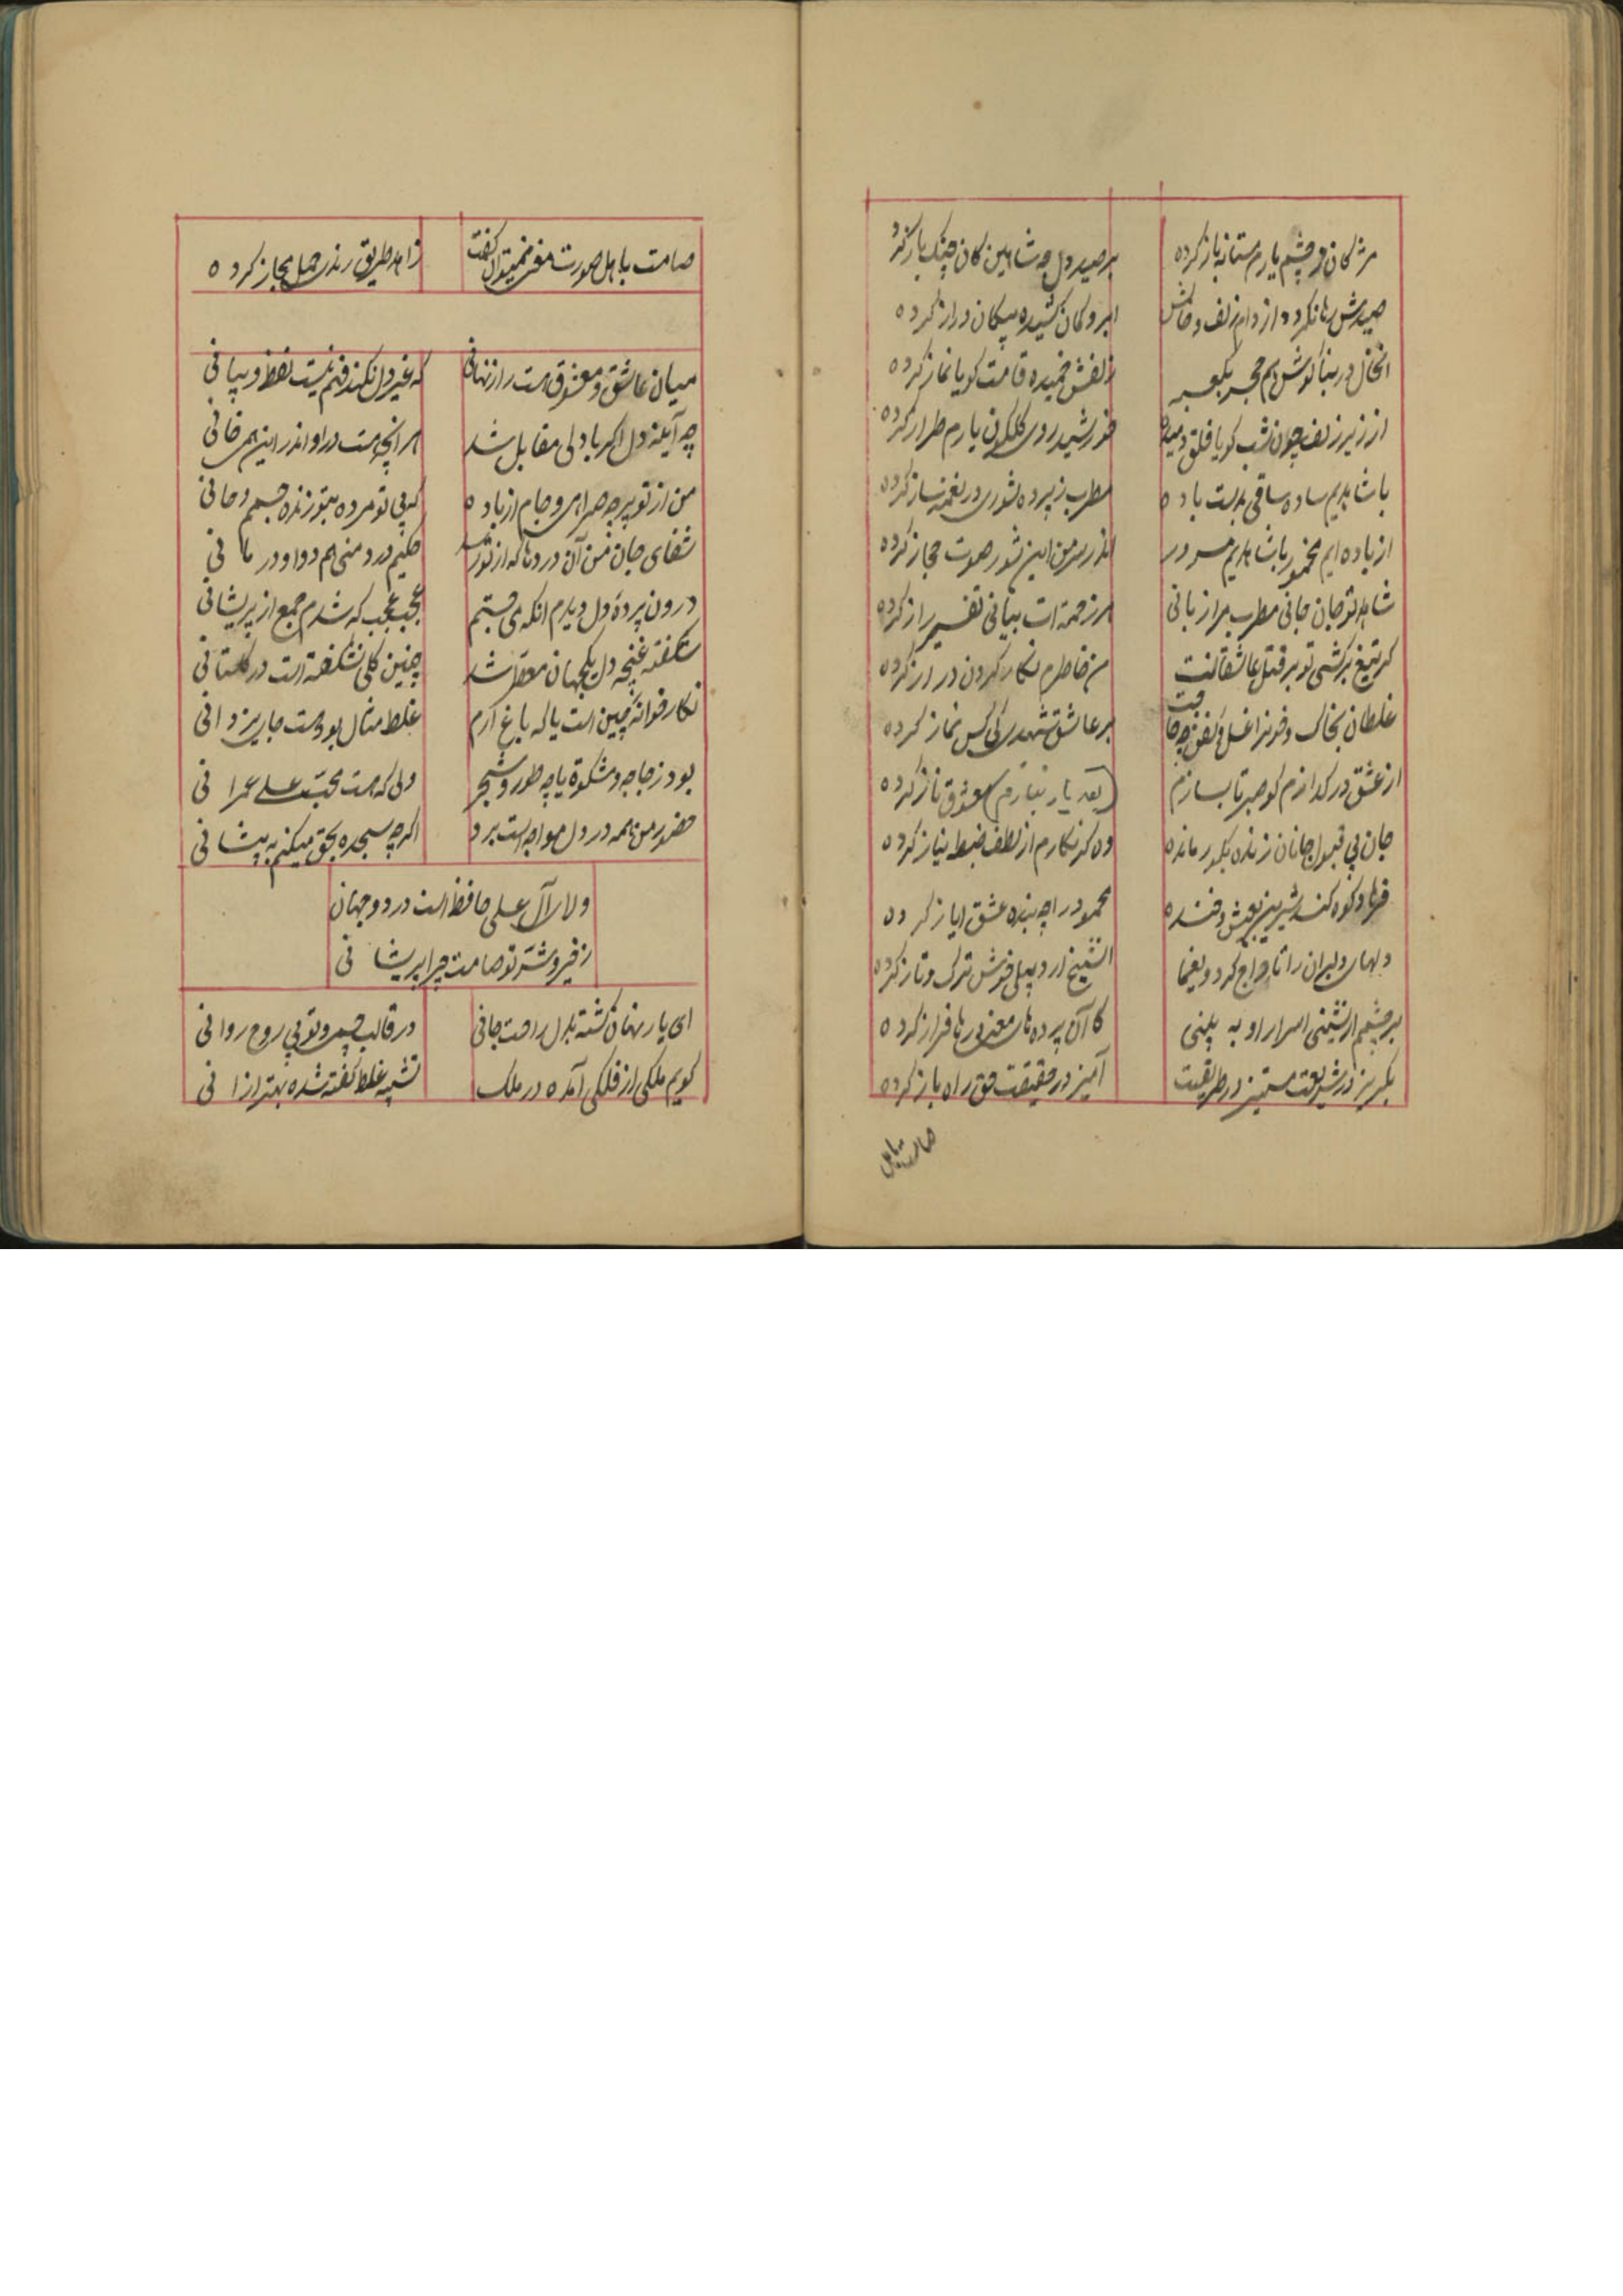 مژکان دو چشم یارم مستانه باز کرده
بر صید دل چه شاهین کان چنک باز کرده
صیدش رها نکردد از دام زلف و خالش
ابرو کمان کشیده پیکان دراز کرده
انخال در بناکوش هم حجر بکعبه
زلفش خمیده قامت کویا نماز کرده
از زیر زلف چون شب کویا فلق دمیده
خورشید روی کلکون یارم طراز کرده
با شاهدیم ساده ساقی بدست باده
مطرب ز پرده شوری در نغمه ساز کرده
از باده ایم مخمور با شاهدیم مسرور
اندر سر من این شور صوت حجاز کرده
شاهد تو جان جانی مطرب مرا زبانی
هر زخمه ات بیانی تفسیر راز کرده
کر تیغ برکشی تو بر قتل عاشقانت
من خاطرم نکار کردن دراز کرده
غلطان بخاک و خونرا غسل و کفن چه حاجت
بر عاشق شهیدی کی کس نماز کرده
از عشق در کدازم کو صبر تا بسازم
(بعد یار بنازم) معشوق ناز کرده
جان بی قبول جانان زنده بکور مانده
وه کز نکارم از لطف ضبط نیاز کرده
فرهاد کوه کند شیرین بعیش و خنده
محمود را چه بنده عشق ایاز کرده
دلهای دلبران را تاراج کرد و یغما
الشیخ اردبیلی خوش ترک و تاز کرده
بر چشم ار نشینی اسرار او به بینی
کا آن پرده های معنی رها فراز کرده
بکریز در شریعت مستیز در طریقت
آمیز در حقیقت حق راه باز کرده
صامت باهل
صامت باهل صورت معنی نمیتوان کفت
زاهد طریق رندی حمل مجاز کرده
میان عاشق و معشوق است راز نهانی
که غیر دل نکند فهم نیست لفظ و بیانی
چه آینه دل اکر با دلی مقابل شد
هر انچه هست در او اندر این همی خانی
من از تو پر چه صراحی و جام از باده
که بی تو مرده بتو زنده جسم و جانی
شفای جان من آن دردها که از تو رسد
حکیم درد منی هم دوا و درمانی
درون پرده دل دیدم انکه می جستم
عجب عجب که شدم جمع از پریشانی
شکفته غنچه دل یکجهان معطر شد
چنین کلی نشکفته است در کلستانی
نکار خوانه چین است یا که باغ ارم
غلط مثال بود هست جای یزدانی
بود زجاجه و مشکوة یا چه طور و شجر
ولی که هست محبت علی عمرانی
حضور من همه در دل مواجه است برد
اکر چه سجده بحق میکنم به پیشانی
ولای آل علی حافظ است در دو جهان
ز خیر و شر تو صامت چرا پریشانی
ای یار نهان کشته بدل راحت جانی
در قالب جسم و تو بی روح روانی
کویم ملکی از فلکی آمده در ملک
تشبیه غلط کفته شده بهتر از انی